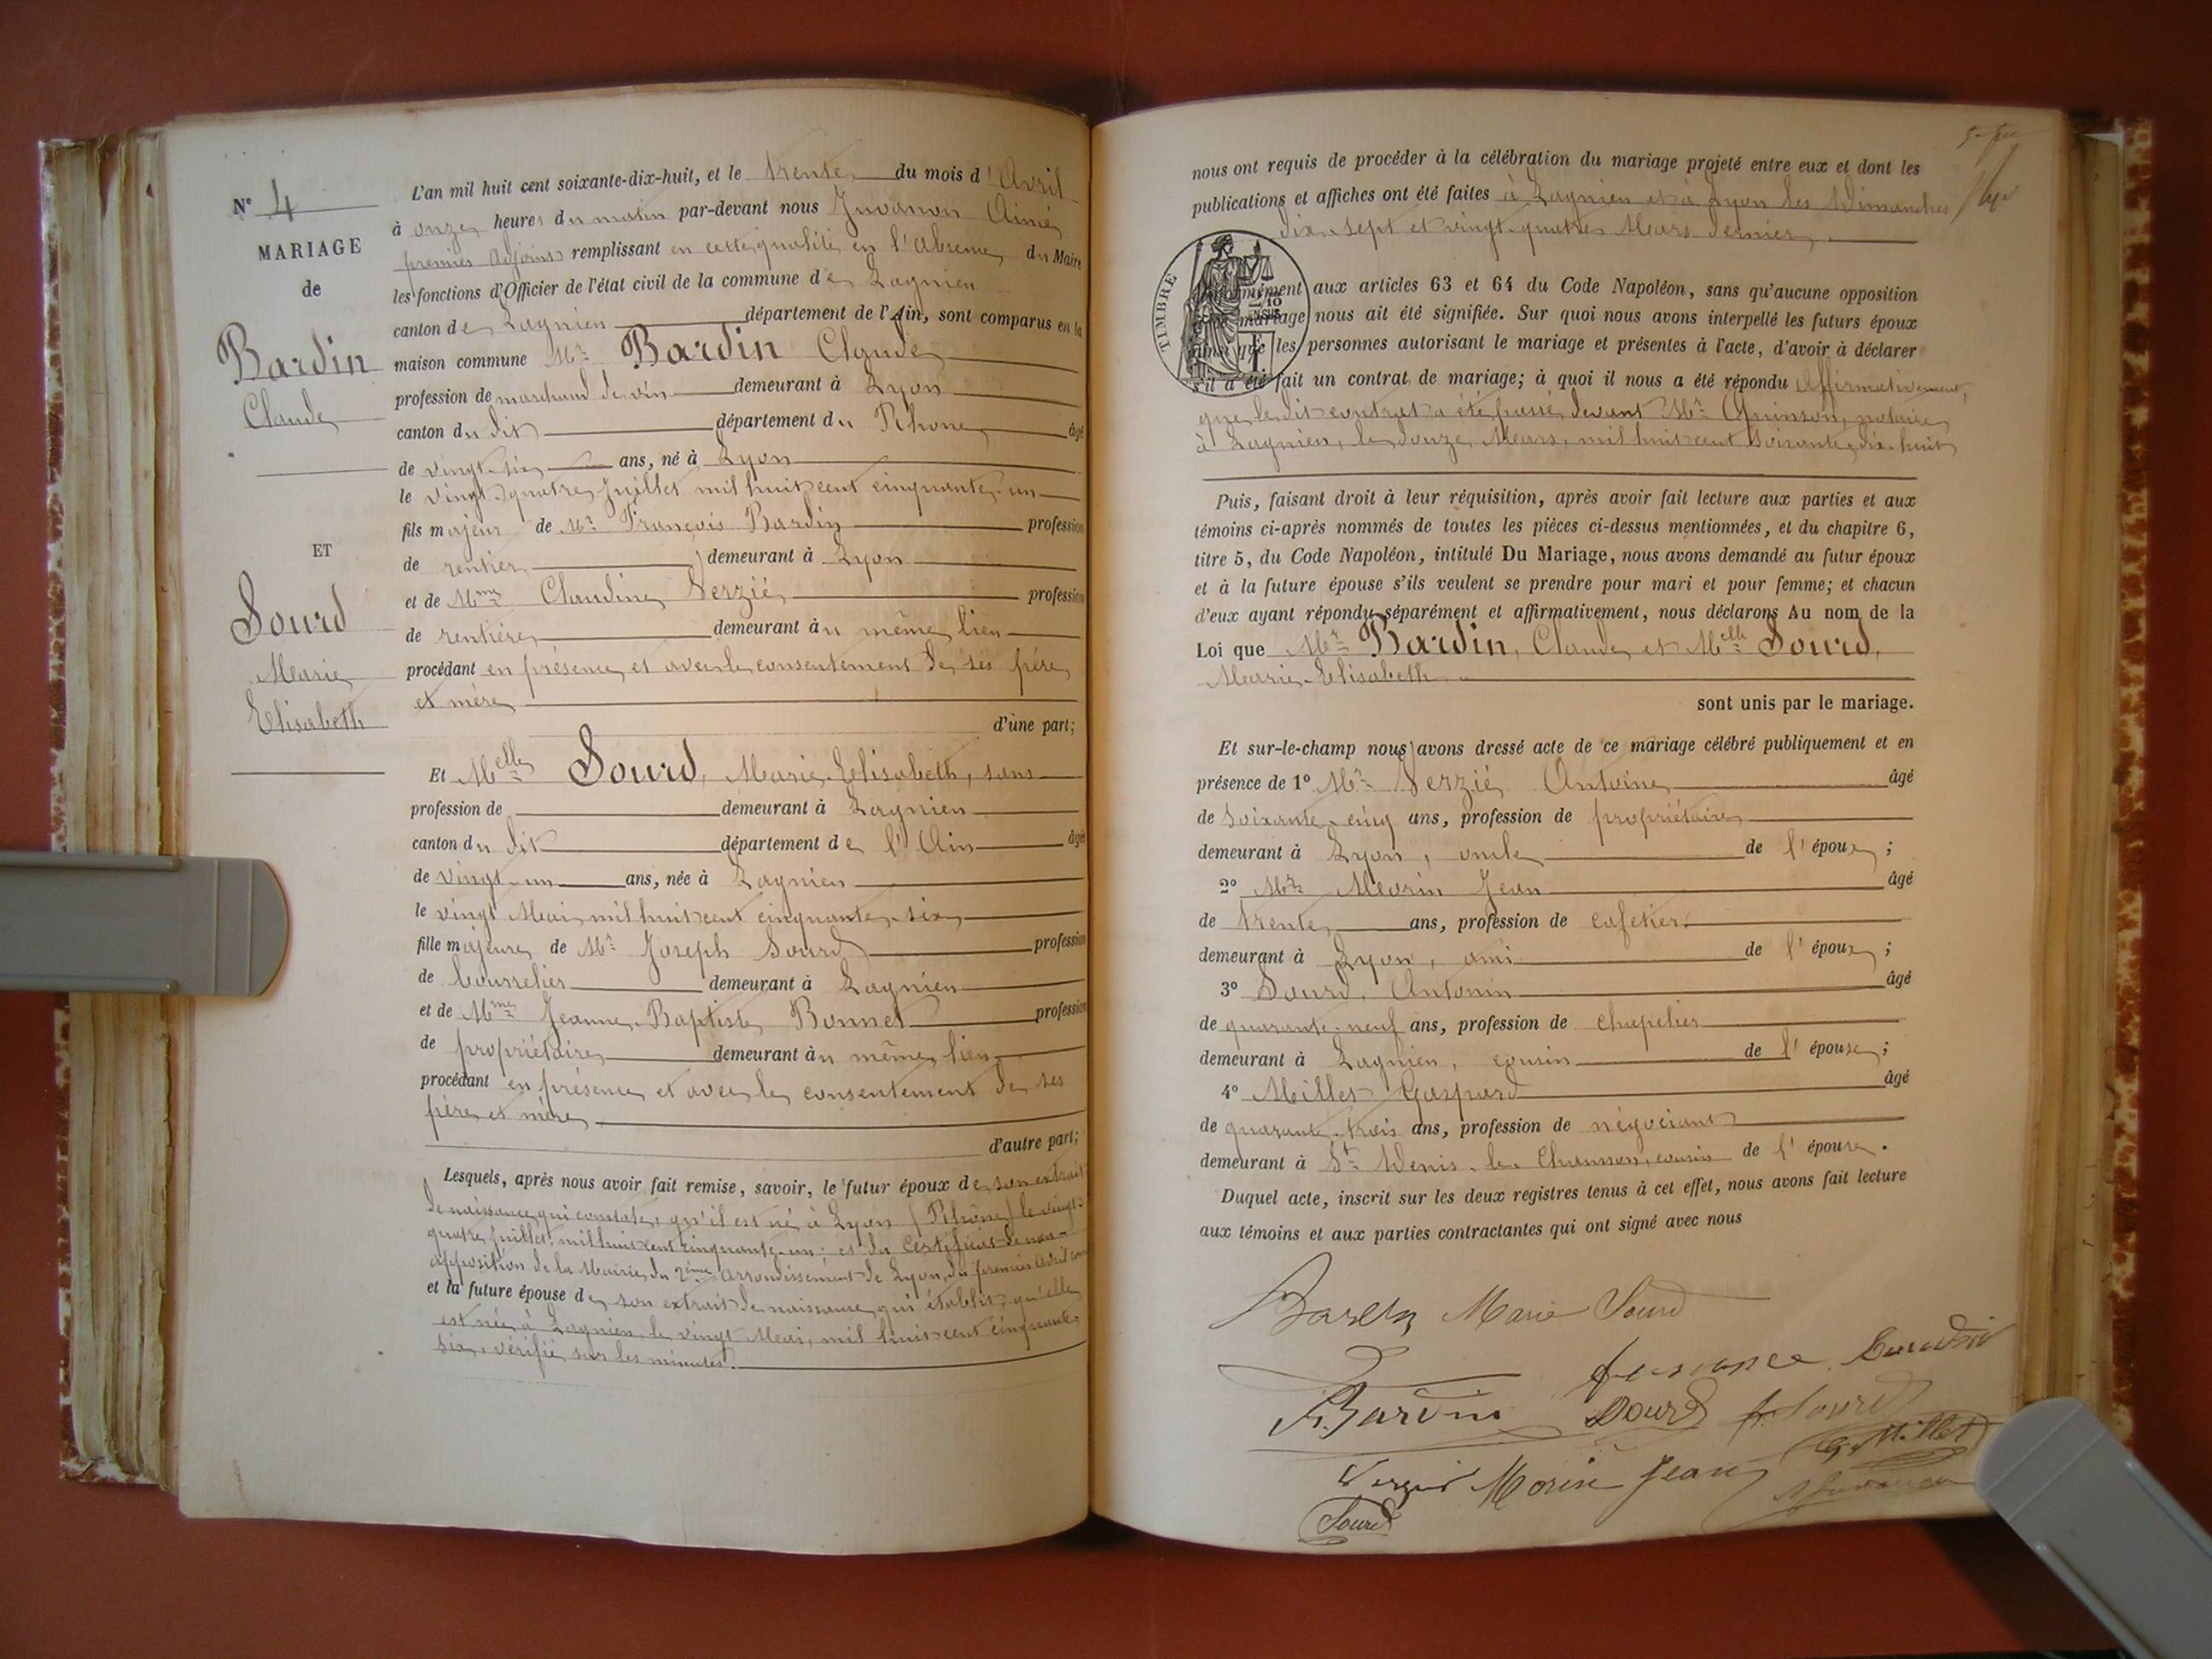 N° 4
MARIAGE
de
Bardin
Claude
ET
Sourd
Marie
Elisabeth
L'an mil huit cent soixante-dix-huit, et le trente du mois d'Avril
à onze heures du matin par-devant nous Juvanon Aimé
premier Adjoint remplissant en cette qualité, en l'absence du Maire
les fonctions d'Officier de l'état civil de la commune de Lagnieu
canton de Lagnieu département de l'Ain, sont comparus en la
maison commune Mr Bardin Claude
profession de marchand de vin demeurant à Lyon
canton du dit département du Rhône âgé
de vingt-six ans, né à Lyon
le vingt-quatre Juillet mil huit cent cinquante-un
fils majeur de Mr François Bardin profession
de rentier demeurant à Lyon
et de Mme Claudine Verzié profession
de rentière demeurant au même lieu
procédant en présence et avec le consentement de ses père
et mère
d'une part;
Et Melle Sourd, Marie-Elisabeth, sans
profession de demeurant à Lagnieu
canton du dit département de l'Ain âgé
de vingt-un ans, née à Lagnieu
le vingt Mai mil huit cent cinquante-six
fille majeure de Mr Joseph Sourd profession
de bourrelier demeurant à Lagnieu
et de Mme Jeanne-Baptiste Bonnet profession
de propriétaire demeurant au même lieu
procédant en présence et avec le consentement de ses
père et mère
d'autre part;
Lesquels, après nous avoir fait remise, savoir, le futur époux de son extrait
de naissance qui constate, qu'il est né à Lyon (Rhône) le vingt-
quatre juillet mil huit cent cinquante-un; et du certificat de non-
opposition de la Mairie du 2ème arrondissement de Lyon, du premier Avril
et la future épouse de son extrait de naissance qui établit, qu'elle
est née à Lagnieu le vingt Mai, mil huit cent cinquante-
six, vérifié sur les minutes.
nous ont requis de procéder à la célébration du mariage projeté entre eux et dont les
publications et affiches ont été faites à Lagnieu et à Lyon les Dimanches
dix-sept et vingt-quatre Mars dernier,
TIMBRE
conformément aux articles 63 et 64 du Code Napoléon, sans qu'aucune opposition
mariage nous ait été signifiée. Sur quoi nous avons interpellé les futurs époux
ainsi que les personnes autorisant le mariage et présentes à l'acte, d'avoir à déclarer
s'il a été fait un contrat de mariage; à quoi il nous a été répondu Affirmativement,
que le dit contrat a été passé devant Mr Quinson, notaire
à Lagnieu, le douze Mars mil huit cent soixante-dix-huit
Puis, faisant droit à leur réquisition, après avoir fait lecture aux parties et aux
témoins ci-après nommés de toutes les pièces ci-dessus mentionnées, et du chapitre 6,
titre 5, du Code Napoléon, intitulé Du Mariage, nous avons demandé au futur époux
et à la future épouse s'ils veulent se prendre pour mari et pour femme; et chacun
d'eux ayant répondu séparément et affirmativement, nous déclarons Au nom de la
Loi que Mr Bardin, Claude et Melle Sourd,
Marie-Elisabeth
sont unis par le mariage.
Et sur-le-champ nous avons dressé acte de ce mariage célébré publiquement et en
présence de 1° Mr Verzié Antoine âgé
de soixante-cinq ans, profession de propriétaire
demeurant à Lyon, oncle de l'époux;
2° Mr Morin Jean âgé
de trente ans, profession de cafetier
demeurant à Lyon, ami de l'époux;
3° Sourd, Antonin âgé
de quarante-neuf ans, profession de chapelier
demeurant à Lagnieu, cousin de l'épouse;
4° Millet Gaspard âgé
de quarante-trois ans, profession de négociant
demeurant à St Denis-le-Chausson, cousin de l'épouse.
Duquel acte, inscrit sur les deux registres tenus à cet effet, nous avons fait lecture
aux témoins et aux parties contractantes qui ont signé avec nous
Bardin Marie Sourd
Bardin Sourd A. Sourd
G. Millet
Verzié Morin Jean
Sourd